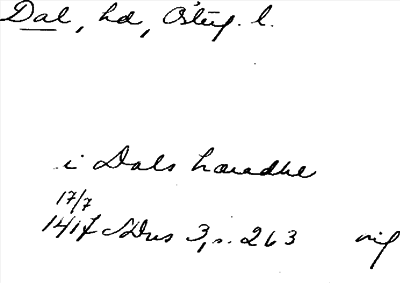 Dal, hd, Österg. l.
i Dals haradhe
17/7
1417 SDns 3, s. 263 orig